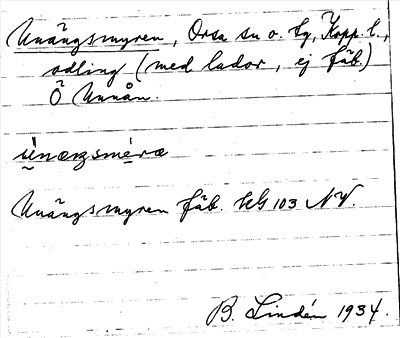 Unängsmyren, Orsa sn o. tg, Kopp. l.,
odling (med lador, ej fäb.)
Ö Unnån.
ùnæŋsmèræ
Unängsmyren fäb. 103 NV.
B. Lindén 1934.